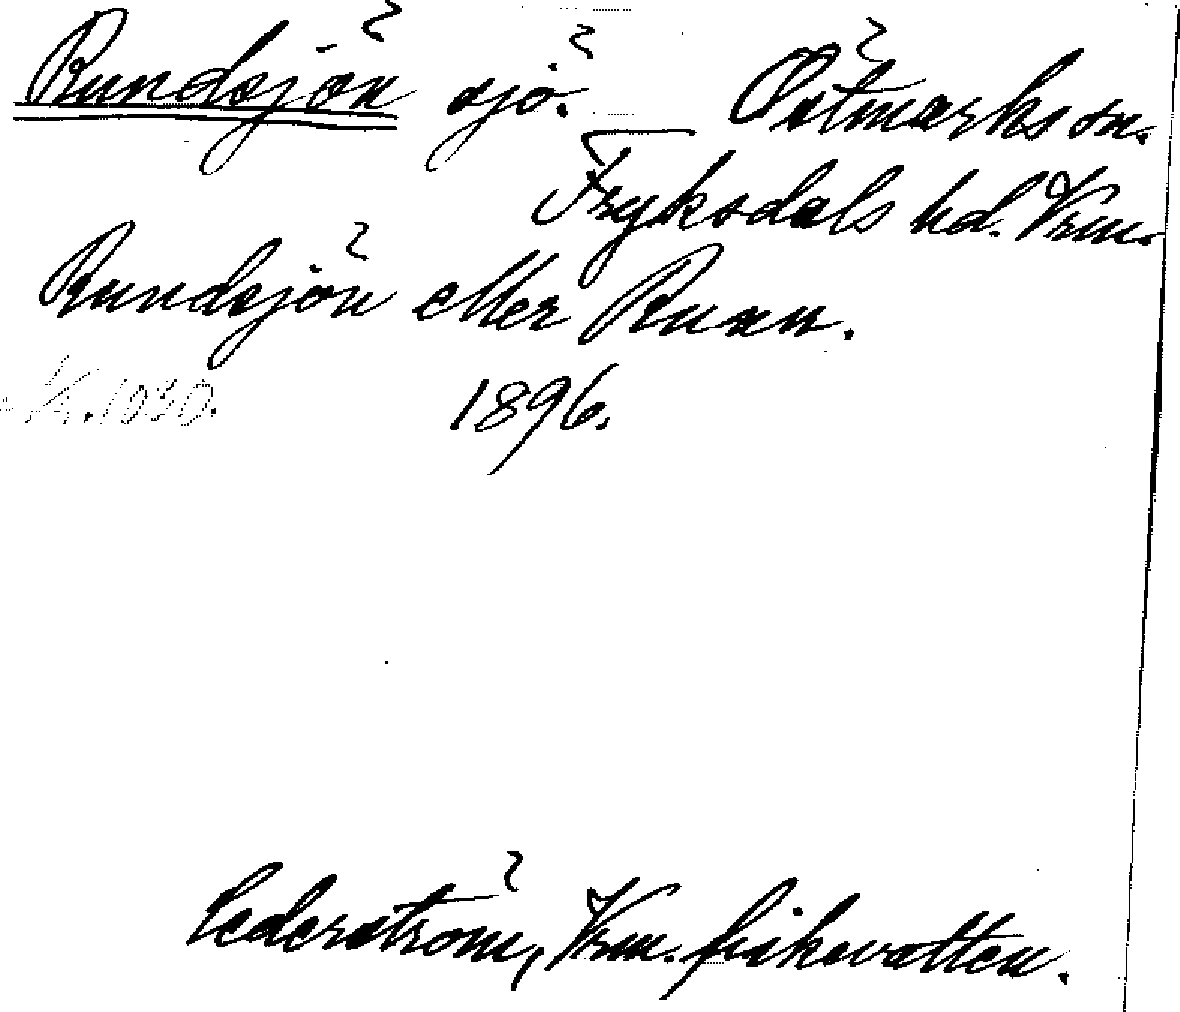 Rundsjön sjö. Östmarks sn.
Fryksdals hd. Vrm.
Rundsjön eller Runn.
1896.
Cederström, Vrm. fiskevatten.